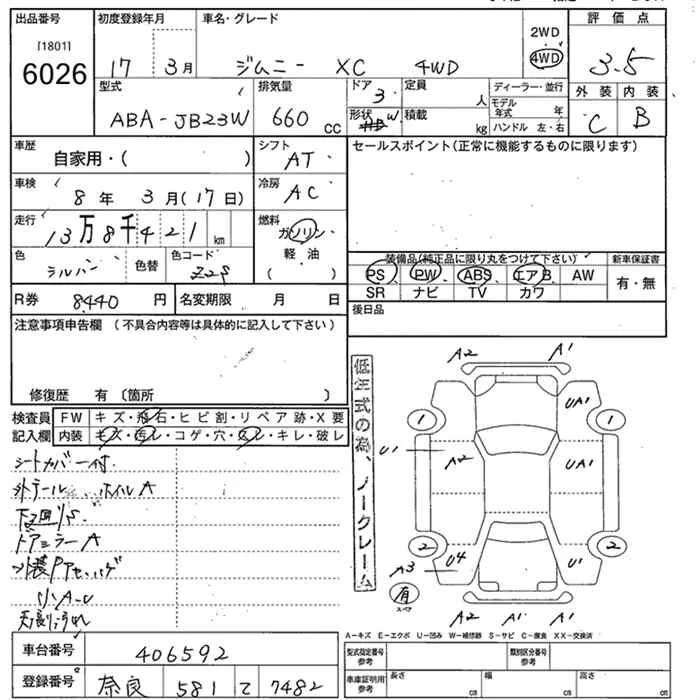 出品番号 初度登録年月 車名・グレード 2WD 評価点
[1801] 6026 17 3月 ジムニー XC 4WD 4WD 3.5
型式 排気量 ドア 3 定員 人 ディーラー・並行 外装 内装
ABA-JB23W 660 cc 形状 W 積載 kg モデル年式 年 C B
ハンドル 左・右
車歴 シフト セールスポイント(正常に機能するものに限ります)
自家用・( ) AT
車検 8年 3月(17日) 冷房 AC
走行 13万8千421 km 燃料 ガソリン
軽油
( )
色 シルバー 色替 色コード Z2S
装備品(純正品に限り丸をつけて下さい) 新車保証書
PS PW ABS エアB AW 有・無
SR ナビ TV カワ
R券 8440円 名変期限 月 日 後日品
注意事項申告欄 (不具合内容等は具体的に記入して下さい)
修復歴 有 〔箇所 〕
検査員記入欄 FW キズ・飛石・ヒビ割・リペア跡・X要
内装 キズ・汚レ・コゲ・穴・スレ・キレ・破レ
シートカバー付
外テール ホイルA
下回りS
ドアミラーA
低年式の為、ノークレーム
A2 A1
1 UA1 1
U1 A2 UA1
2 U4 U1 2
A3
有
スペア
A2 A1 A2
A-キズ E-エクボ U-凹み W-補修跡 S-サビ C-腐食 XX-交換済
車台番号 406592
登録番号 奈良 581 て 7482
型式指定番号参考 類別区分番号参考
車庫証明用参考 長さ cm 幅 cm 高さ cm